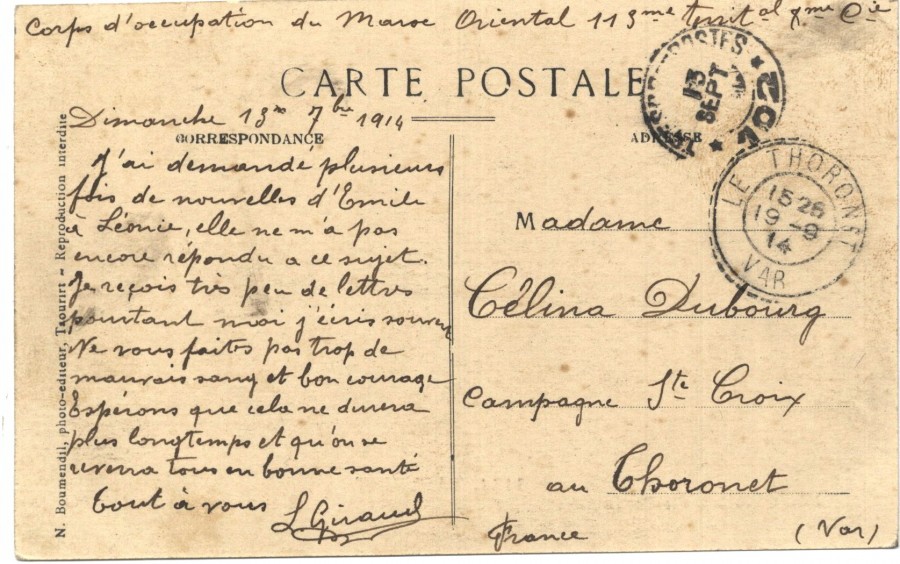 Corps d'occupation du Maroc Oriental 113me territal 7me Cie
CARTE POSTALE
Dimanche 13 7bre 1914
CORRESPONDANCE
J'ai demandé plusieurs
fois de nouvelles d'Emile
à Léonie, elle ne m'a pas
encore répondu a ce sujet.
Je reçois très peu de lettres
pourtant moi j'écris souvent
Ne vous faites pas trop de
mauvais sang et bon courage
Espérons que cela ne durera
plus longtemps et qu'on se
reverra tous en bonne santé
Tout à vous
L Giraud
N. Boumendil, photo-editeur, Taourirt - Reproduction interdite
ADRESSE
Madame
Célina Dubourg
Campagne Ste Croix
au Thoronet
France (Var)
POSTES
13
SEPT
702
LE THORONET
15 25
19 -9
14
VAR